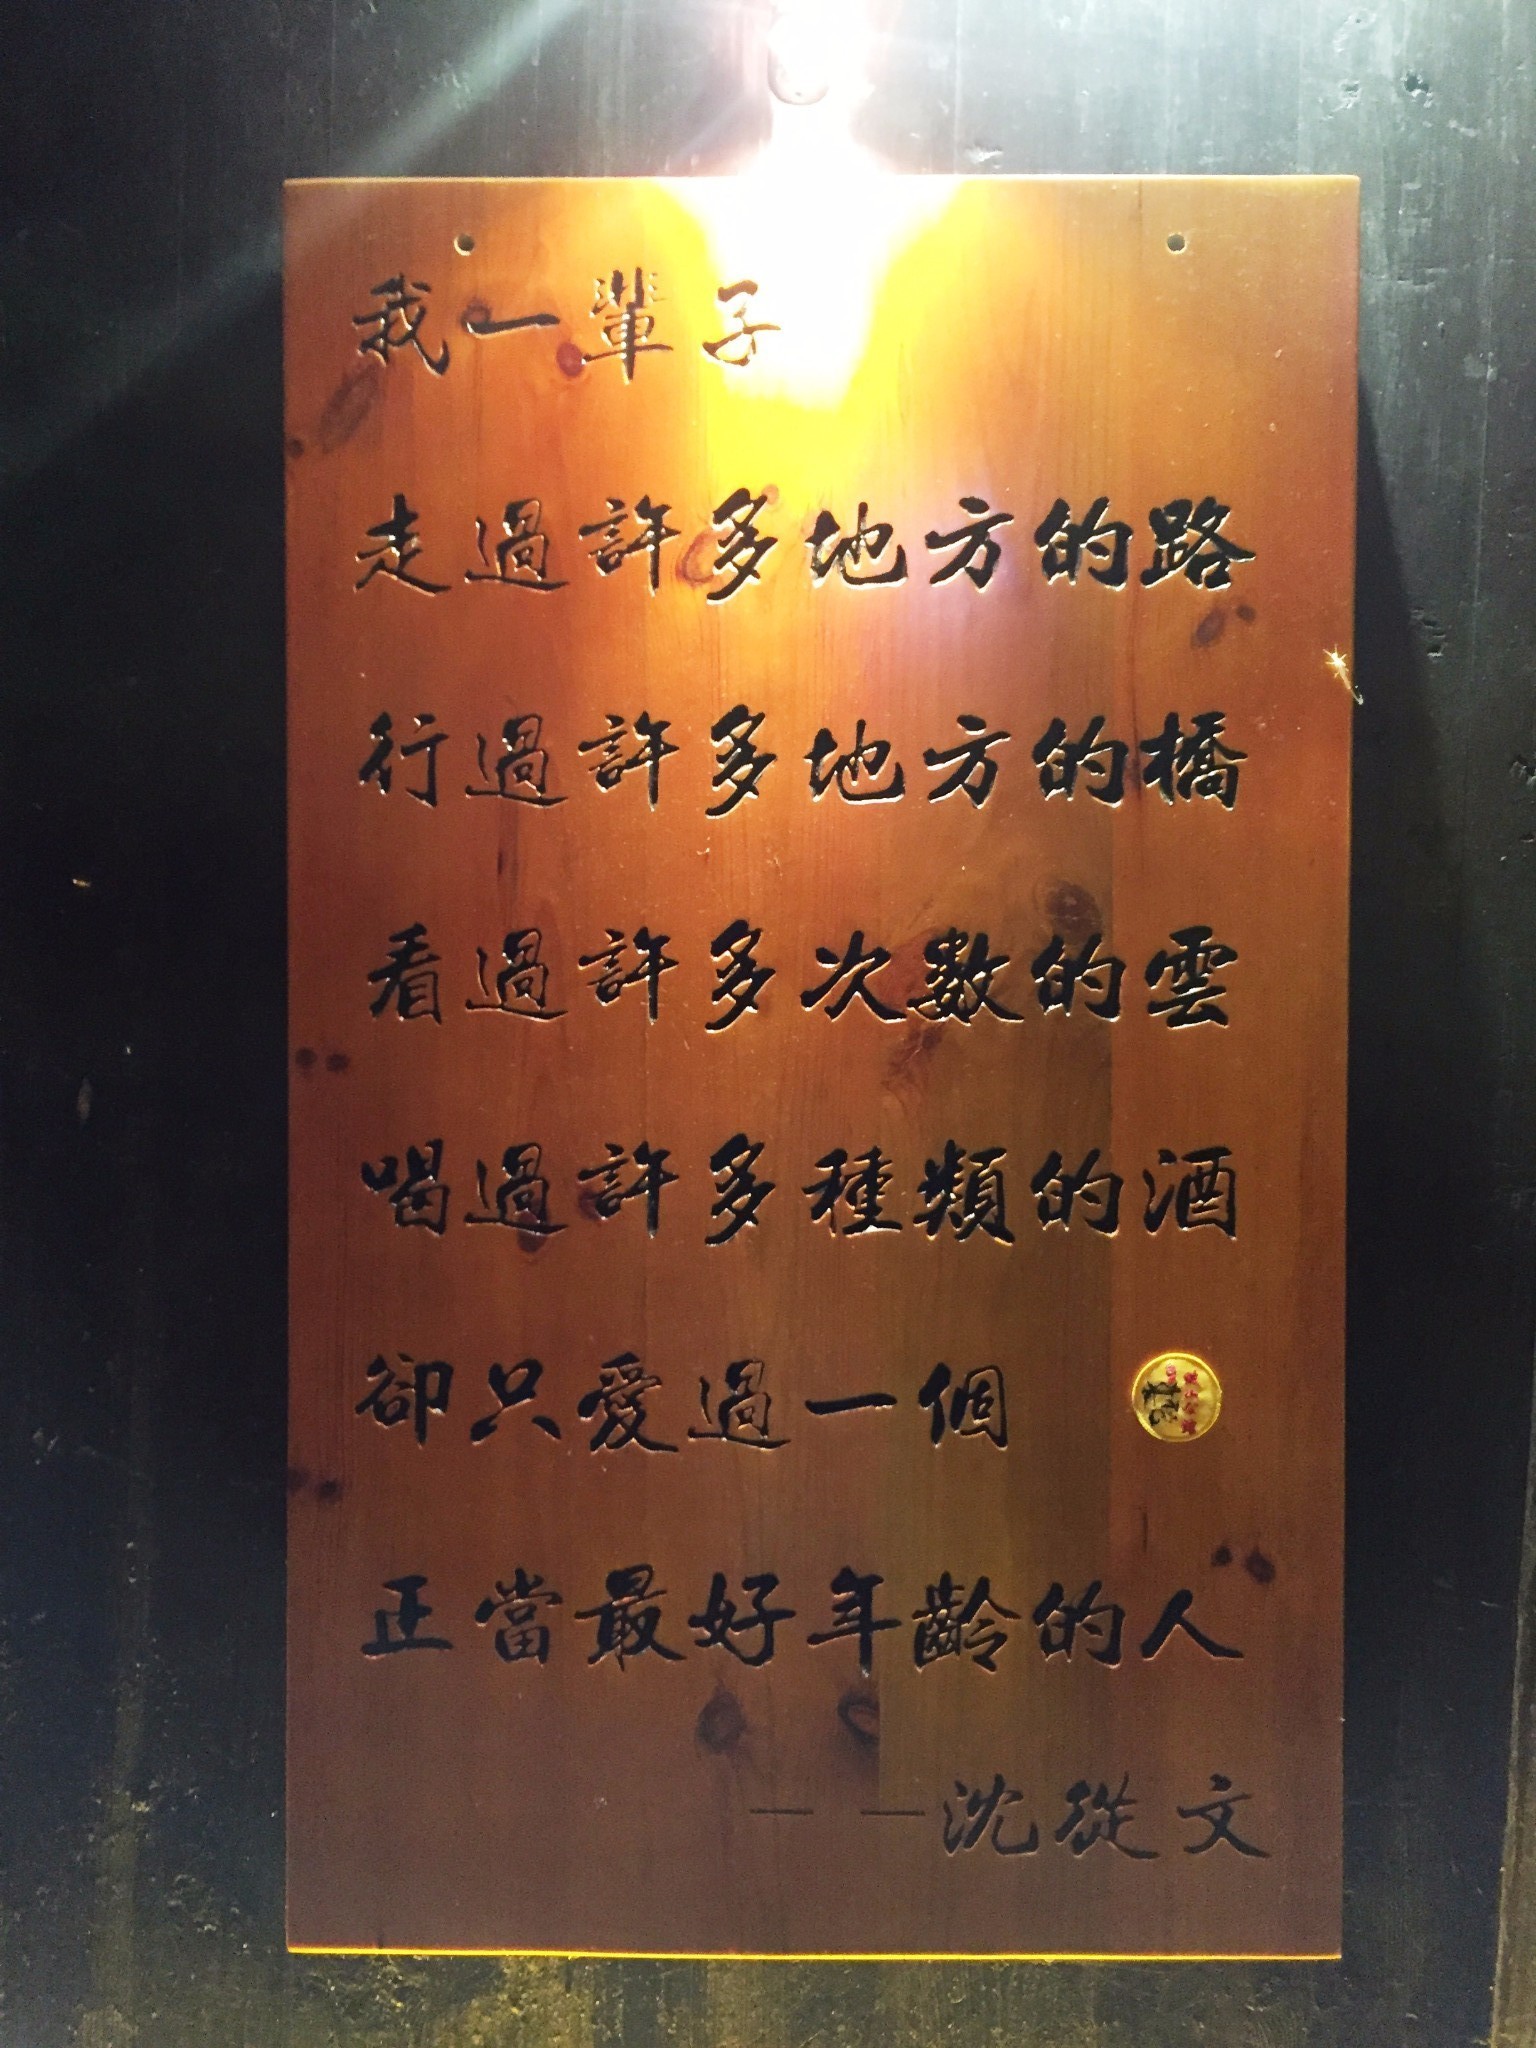 我一輩子
走過許多地方的路
行過許多地方的橋
看過許多次數的雲
喝過許多種類的酒
卻只愛過一個
正當最好年齡的人
——沈從文